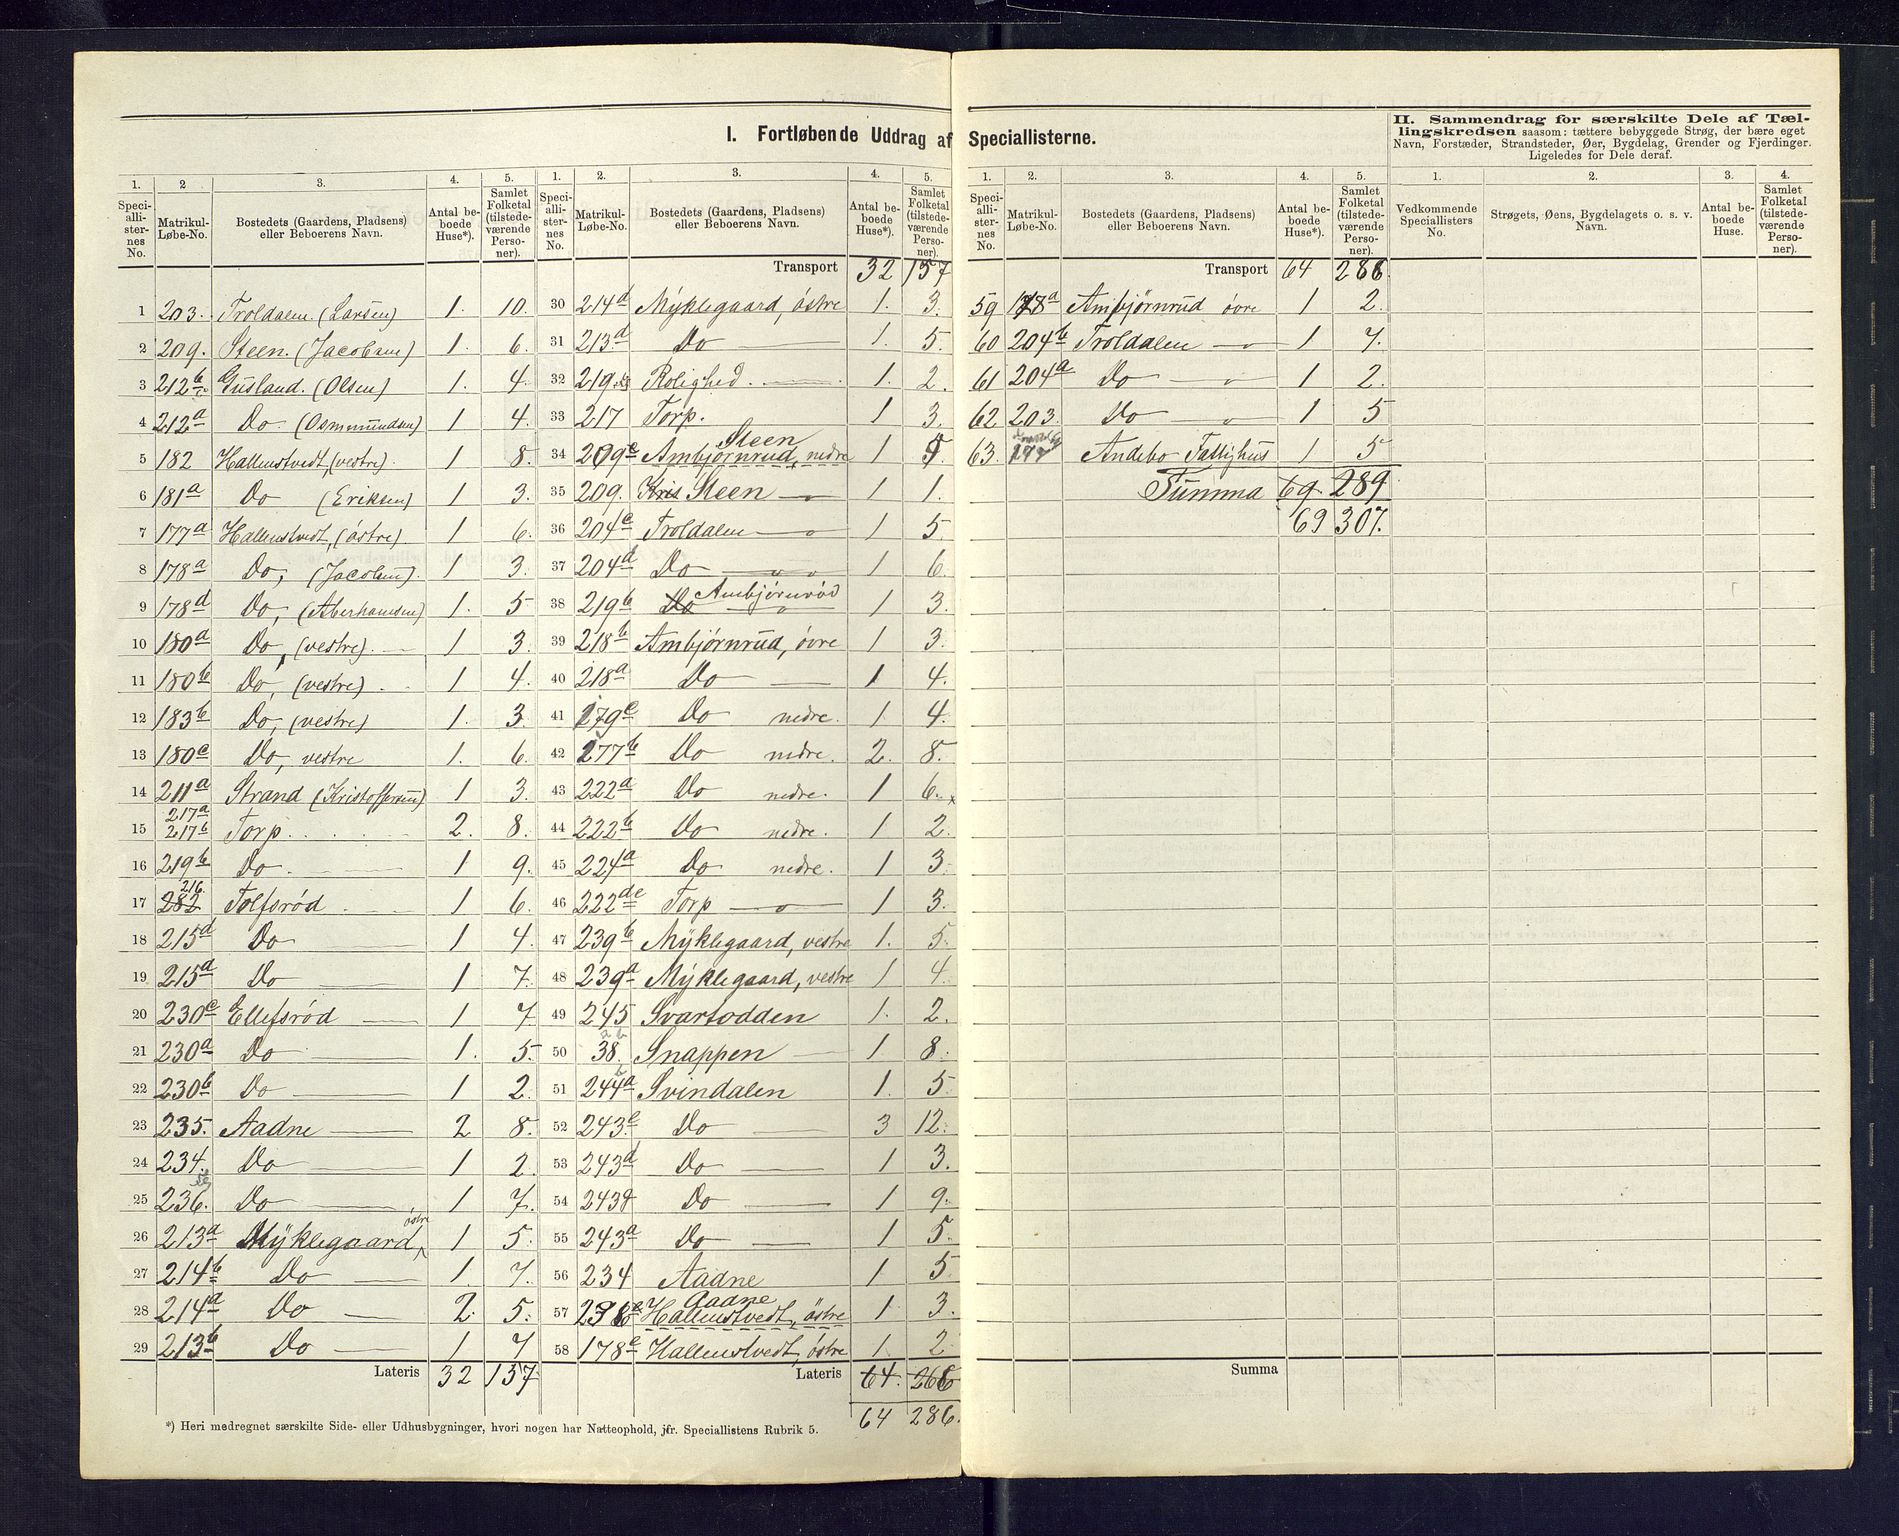 I. Fortløbende Uddrag af Speciallisterne.
II. Sammendrag for særskilte Dele af Tæl-
lingskredsen saasom: tættere bebyggede Strøg, der bære eget
Navn, Forstæder, Strandsteder, Øer, Bygdelag, Grender og Fjerdinger.
Ligeledes for Dele deraf.
1. 2 3. 4. 5.
Speciallisternes No. Matrikul-Løbe-No. Bostedets (Gaardens, Pladsen) eller Beboerens Navn. Antal beboede Huse*). Samlet Folketal (tilstedeværende Personer).
1 203. Troldalen. (Larsen) 1. 10.
2 209. Steen. (Jacobsen) 1. 6.
3 212b Gusland. (Olsen) 1. 4.
4 212a Do. (Osmundsen) 1 4.
5 182 Hallenstvedt (vestre). 1 8.
6 181a Do (Eriksen) 1 3.
7 177a Hallenstvedt, (østre) 1 6.
8 178a Do, (Jacobsen). 1 3.
9 178d Do, (Aberhamsen) 1. 5
10 180a Do, (vestre). 1 3.
11 180b Do, (vestre) 1 4.
12 183b Do, (vestre) 1. 3.
13 180c Do, vestre 1. 6.
14 211a Strand (Kristoffersen) 1 3.
15 217a 217b Torp. 2. 8.
16 219b Do. 1 9.
17 216. 282 Tolfsrød 1 6.
18 215d Do 1 4.
19 215d Do 1 7.
20 230c Ellefsrød 1 7.
21 230a Do 1. 5.
22 230b Do 1 2.
23 235. Aadne 2 8.
24 234. Do 1 2.
25 236. Do 1 7.
26 213a Myklegaard, østre 1 5.
27 214b Do 1. 7.
28 214a Do 2. 5.
29 213b Do 1 7
Lateris 32 157
1. 2. 3. 4. 5.
Speciallisternes No. Matrikul-Løbe-No. Bostedets (Gaardens, Pladsen) eller Beboerens Navn. Antal beboede Huse*). Samlet Folketal (tilstedeværende Personer).
Transport 32 157
30 214d Myklegaard, østre 1. 3.
31 213d Do 1. 5.
32 219 Rolighed. 1. 2.
33 217 Torp. 1 3.
34 209e Steen Ambjørnrud, nedre 1
35 209. Steen 1 1.
36 204c Troldalen 1 5
37 204d Do 1 6.
38 219b Do Ambjørnrød 1 3.
39 218b Ambjørnrud, øvre 1 3.
40 218a Do 1 4.
41 179c Do nedre. 1. 4.
42 177b Do nedre. 2. 8.
43 222a Do nedre. 1 6.
44 222b Do nedre. 1 2.
45 224a Do nedre. 1 3.
46 222de Torp 1 3.
47 239b Myklegaard, vestre 1. 5.
48 239a Myklegaard, vestre 1 4.
49 245 Svartodden 1. 2.
50 38. Snappen 1 8.
51 244a Svindalen 1. 5
52 243c Do 3 12.
53 243d Do 1 3.
54 243 Do 1 9.
55 243a Do 1 5.
56 234 Aadne 1 5
57 Aadne Hallenstvedt, østre 1 3.
58 178e Hallenstvedt, østre 1. 2
Lateris 64. 268
64 286.
*) Heri medregnet særskilte Side- eller Udhusbygninger, hvori nogen har Natteophold, jfr. Speciallistens Rubrik 5.
1. 2. 3. 4. 5.
Speciallisternes No. Matrikul-Løbe-No. Bostedets (Gaardens, Pladsen) eller Beboerens Navn. Antal beboede Huse*). Samlet Folketal (tilstedeværende Personer).
Transport 64 286.
59 178a Ambjørnrud øvre 1 2.
60 204b Troldalen 1 7.
61 204a Do 1 2.
62 203. Do 1 5
63. Andebo Fattighus 1 5
Summa 69. 289
69 307.
Summa
1. 2. 3. 4.
Vedkommende Speciallisters No. Strøgets, Øens, Bygdelagets o. s. v. Navn. Antal beboede Huse. Samlet Folketal (tilstedeværende Personer).